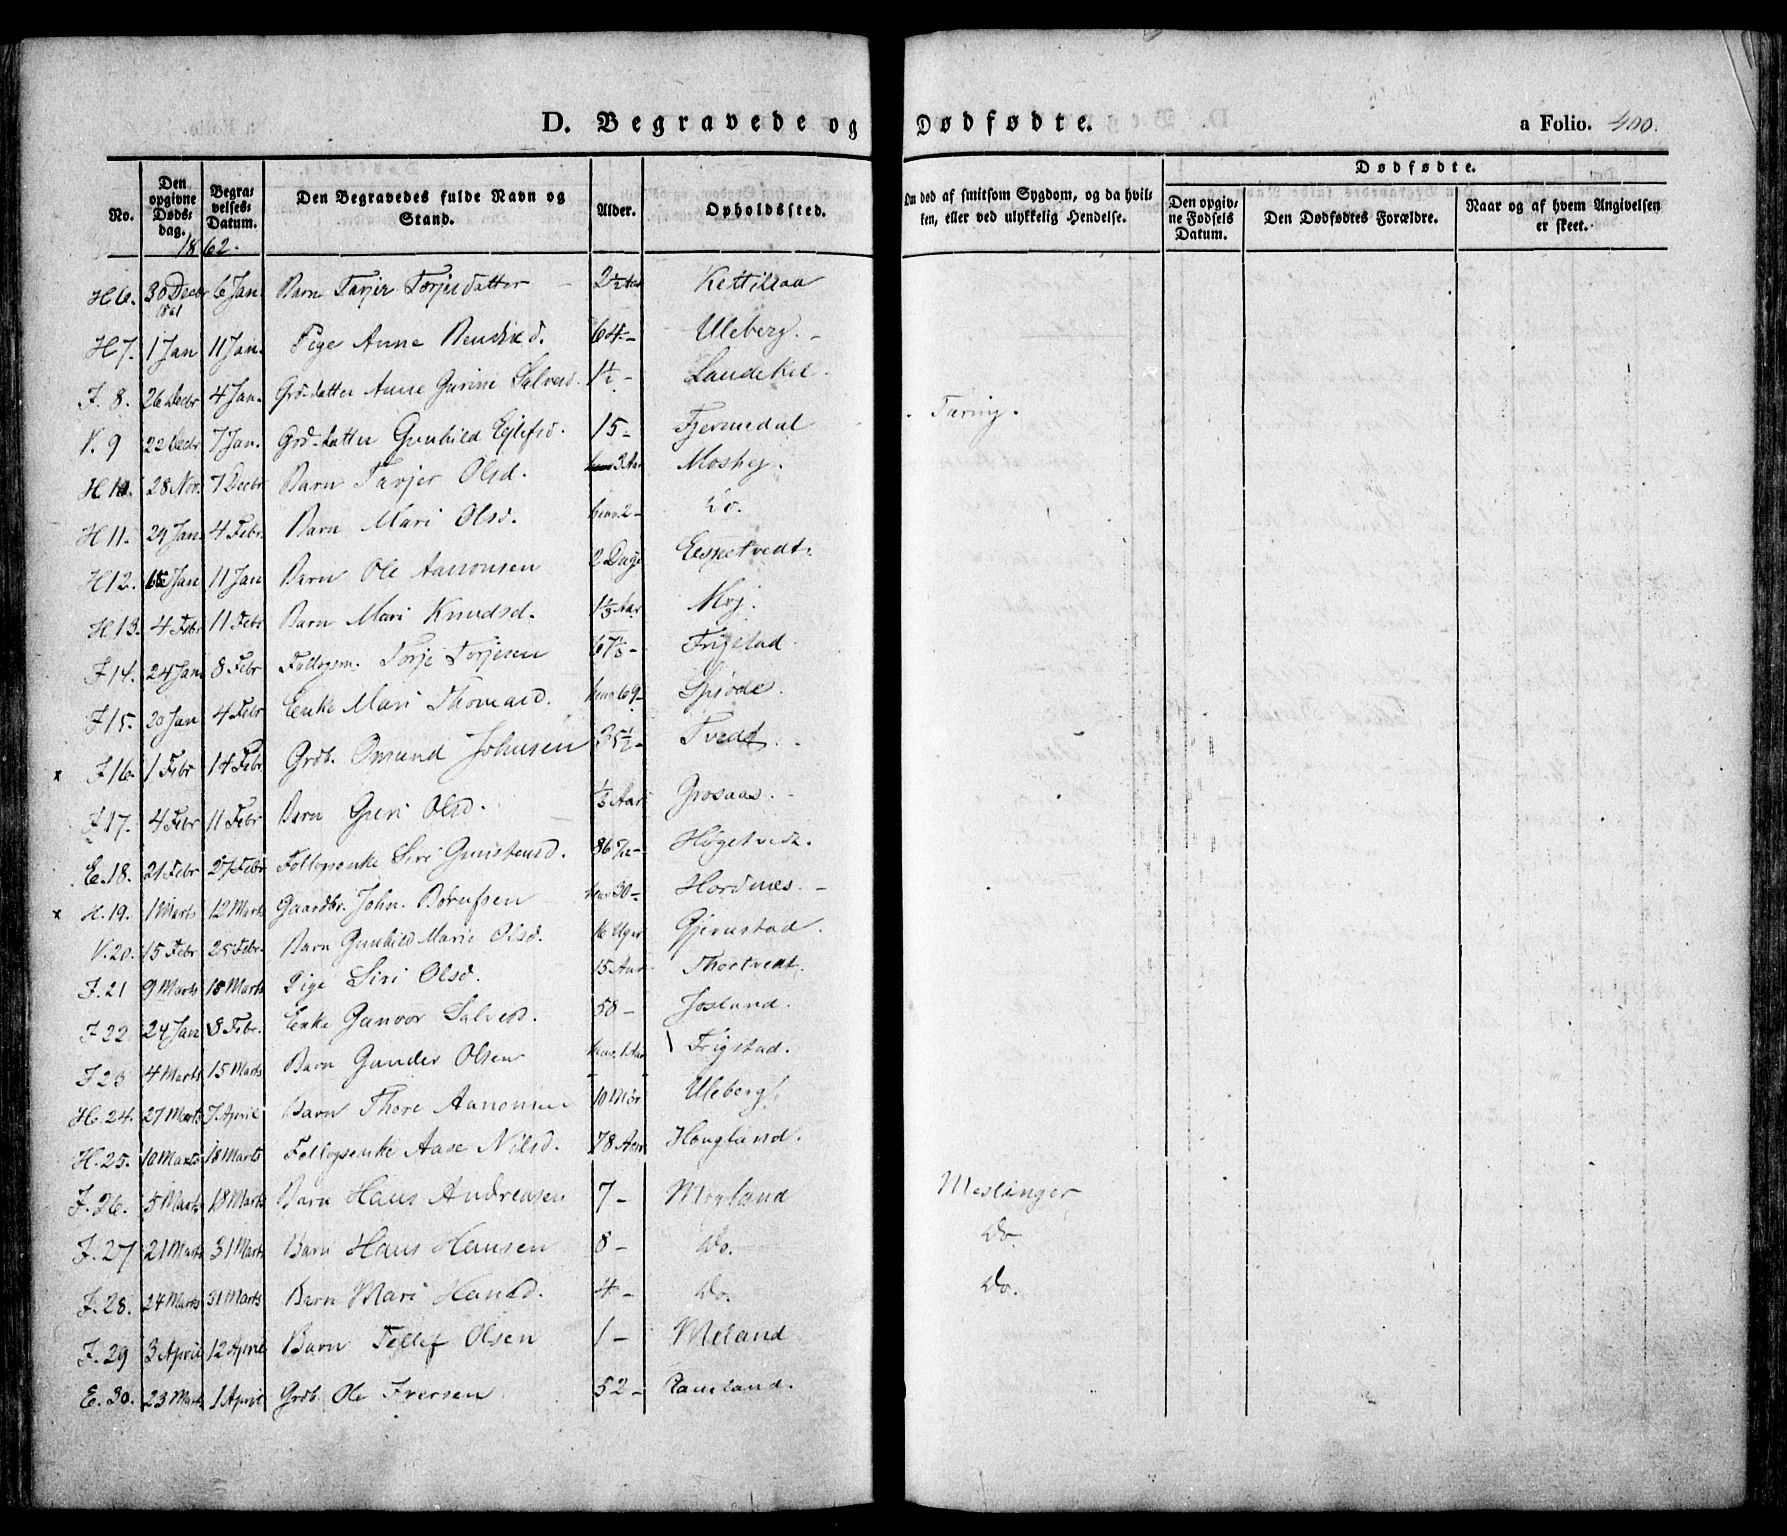 D. Begravede og Dødfødte. a Folio. 400.
No. Den opgivne Døds-dag. Begra-velses-Datum. Den Begravedes fulde Navn og Stand. Alder. Opholdssted. Om død af smitsom Sygdom, og da hvil-ken, eller ved ulykkelig Hendelse. Dødfødte. Den opgiv-ne Fødsels Datum. Den Dødfødtes Forældre. Naar og af hvem Angivelsen er skeet.
1862.
H 6. 30 Decbr 1861 6 Jan Barn Tarjer Torjesdatter 2½ Aar Kettilsaa
H 7. 1 Jan 11 Jan. Pige Anne 64 - Uleberg. -
J. 8. 26 Decbr 4 Jan. Grd.datter Anne Gurine Salvesd. 1½ - Landekil.
V. 9 22 Decbr 7 Jan. Grd.datter Gunhild Ejlefsd. 15 - Fjermedal Tæring.
H 10. 28 Nov. 7 Decbr Barn Tarjer Olsd. 3 Aar Moshej.
H 11. 29 Jan. 4 Febr. Barn Mari Olsd. henv. 2 - Do.
H 12. Jan 11 Jan Barn Ole Aanonsen 2 Dage Espetvedt.
H 13. 4 Febr 11 Febr Barn Mari Knudsd. 1⅓ Aar Moj.
J. 14. 24 Jan 8 Febr Follogsm. Torje Torjesen 67⅓ - Frigstad.
J. 15. 20 Jan 4 Febr Enke Mari Thomasd. henv. 69 - Spiøde.
x J. 16. 1 Febr 14 Febr Grdb. Omund Johnsen 35½ - Tvedt.
J. 17. 4 Febr 11 Febr Barn Guri Olsd. ⅓ Aar Grosaas.
E. 18. 21 Febr 27 Febr Follogsenke Siri Gunstensd. 86 7/12 - Høgetvedt.
x H. 19. 1 Marts 12 Marts Gaardbr. John. Børufsen henv 30 - Hordnes. -
V. 20. 15 Febr 25 Febr. Barn Gunhild Marie Olsd. 16 Uger Gjerustad.
J. 21 9 Marts 18 Marts Pige Siri Olsd. 15 Aar Thortvedt.
J. 22. 24 Jan 8 Febr. Enke Gunvor Salvesd. 58 - Josland.
J. 23 4 Marts 15 Marts Barn Gunder Olsen henv. 1 Aar Frigstad.
H. 24. 27 Marts 7 April Barn Thore Aanonsen 10 Mdr Uleberg.
H. 25. 10 Marts 18 Marts Follogsenke Aase Nilsd. 78 Aar Hougland.
J. 26. 5 Marts 18 Marts Barn Hans Andreasen 7 - Moland Meslinger
J. 27 21 Marts 31 Marts Barn Hans Hansen 8 - Do. Do.
J. 28. 24 Marts 31 Marts Barn Mari Hansd. 4 - Do. Do.
J. 29 3 April 12 April Barn Tellef Olsen 1 - Meland
E. 30. 23 Marts 1 April Grdb. Ole Iversen 52 - Rameland.